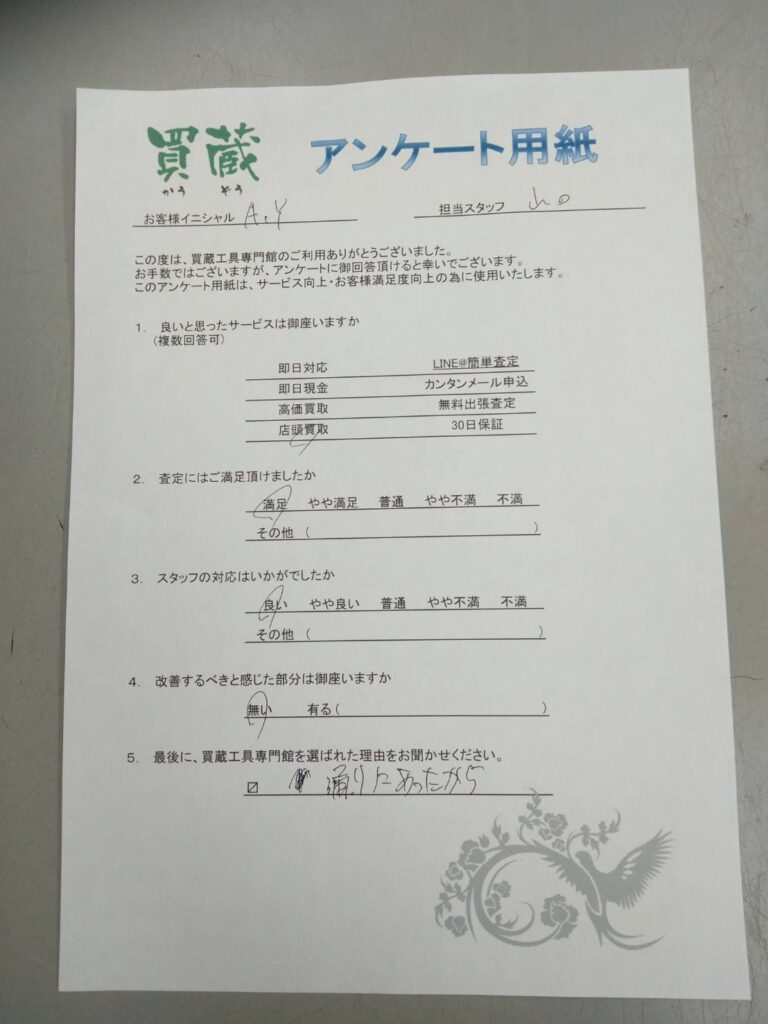 買蔵 アンケート用紙
かう ぞう
お客様イニシャル A.Y 担当スタッフ
この度は、買蔵工具専門館のご利用ありがとうございました。
お手数ではございますが、アンケートに御回答頂けると幸いでございます。
このアンケート用紙は、サービス向上・お客様満足度向上の為に使用いたします。
1. 良いと思ったサービスは御座いますか
(複数回答可)
即日対応 LINE@簡単査定
即日現金 カンタンメール申込
高価買取 無料出張査定
店頭買取 30日保証
2. 査定にはご満足頂けましたか
満足 やや満足 普通 やや不満 不満
その他 ( )
3. スタッフの対応はいかがでしたか
良い やや良い 普通 やや不満 不満
その他 ( )
4. 改善するべきと感じた部分は御座いますか
無い 有る( )
5. 最後に、買蔵工具専門館を選ばれた理由をお聞かせください。
☑ 通りにあったから